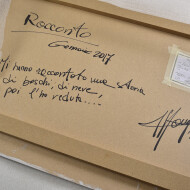 Racconto
Gennaio 2017
Mi hanno raccontato una storia
di boschi, di neve,
poi l'ho veduta....